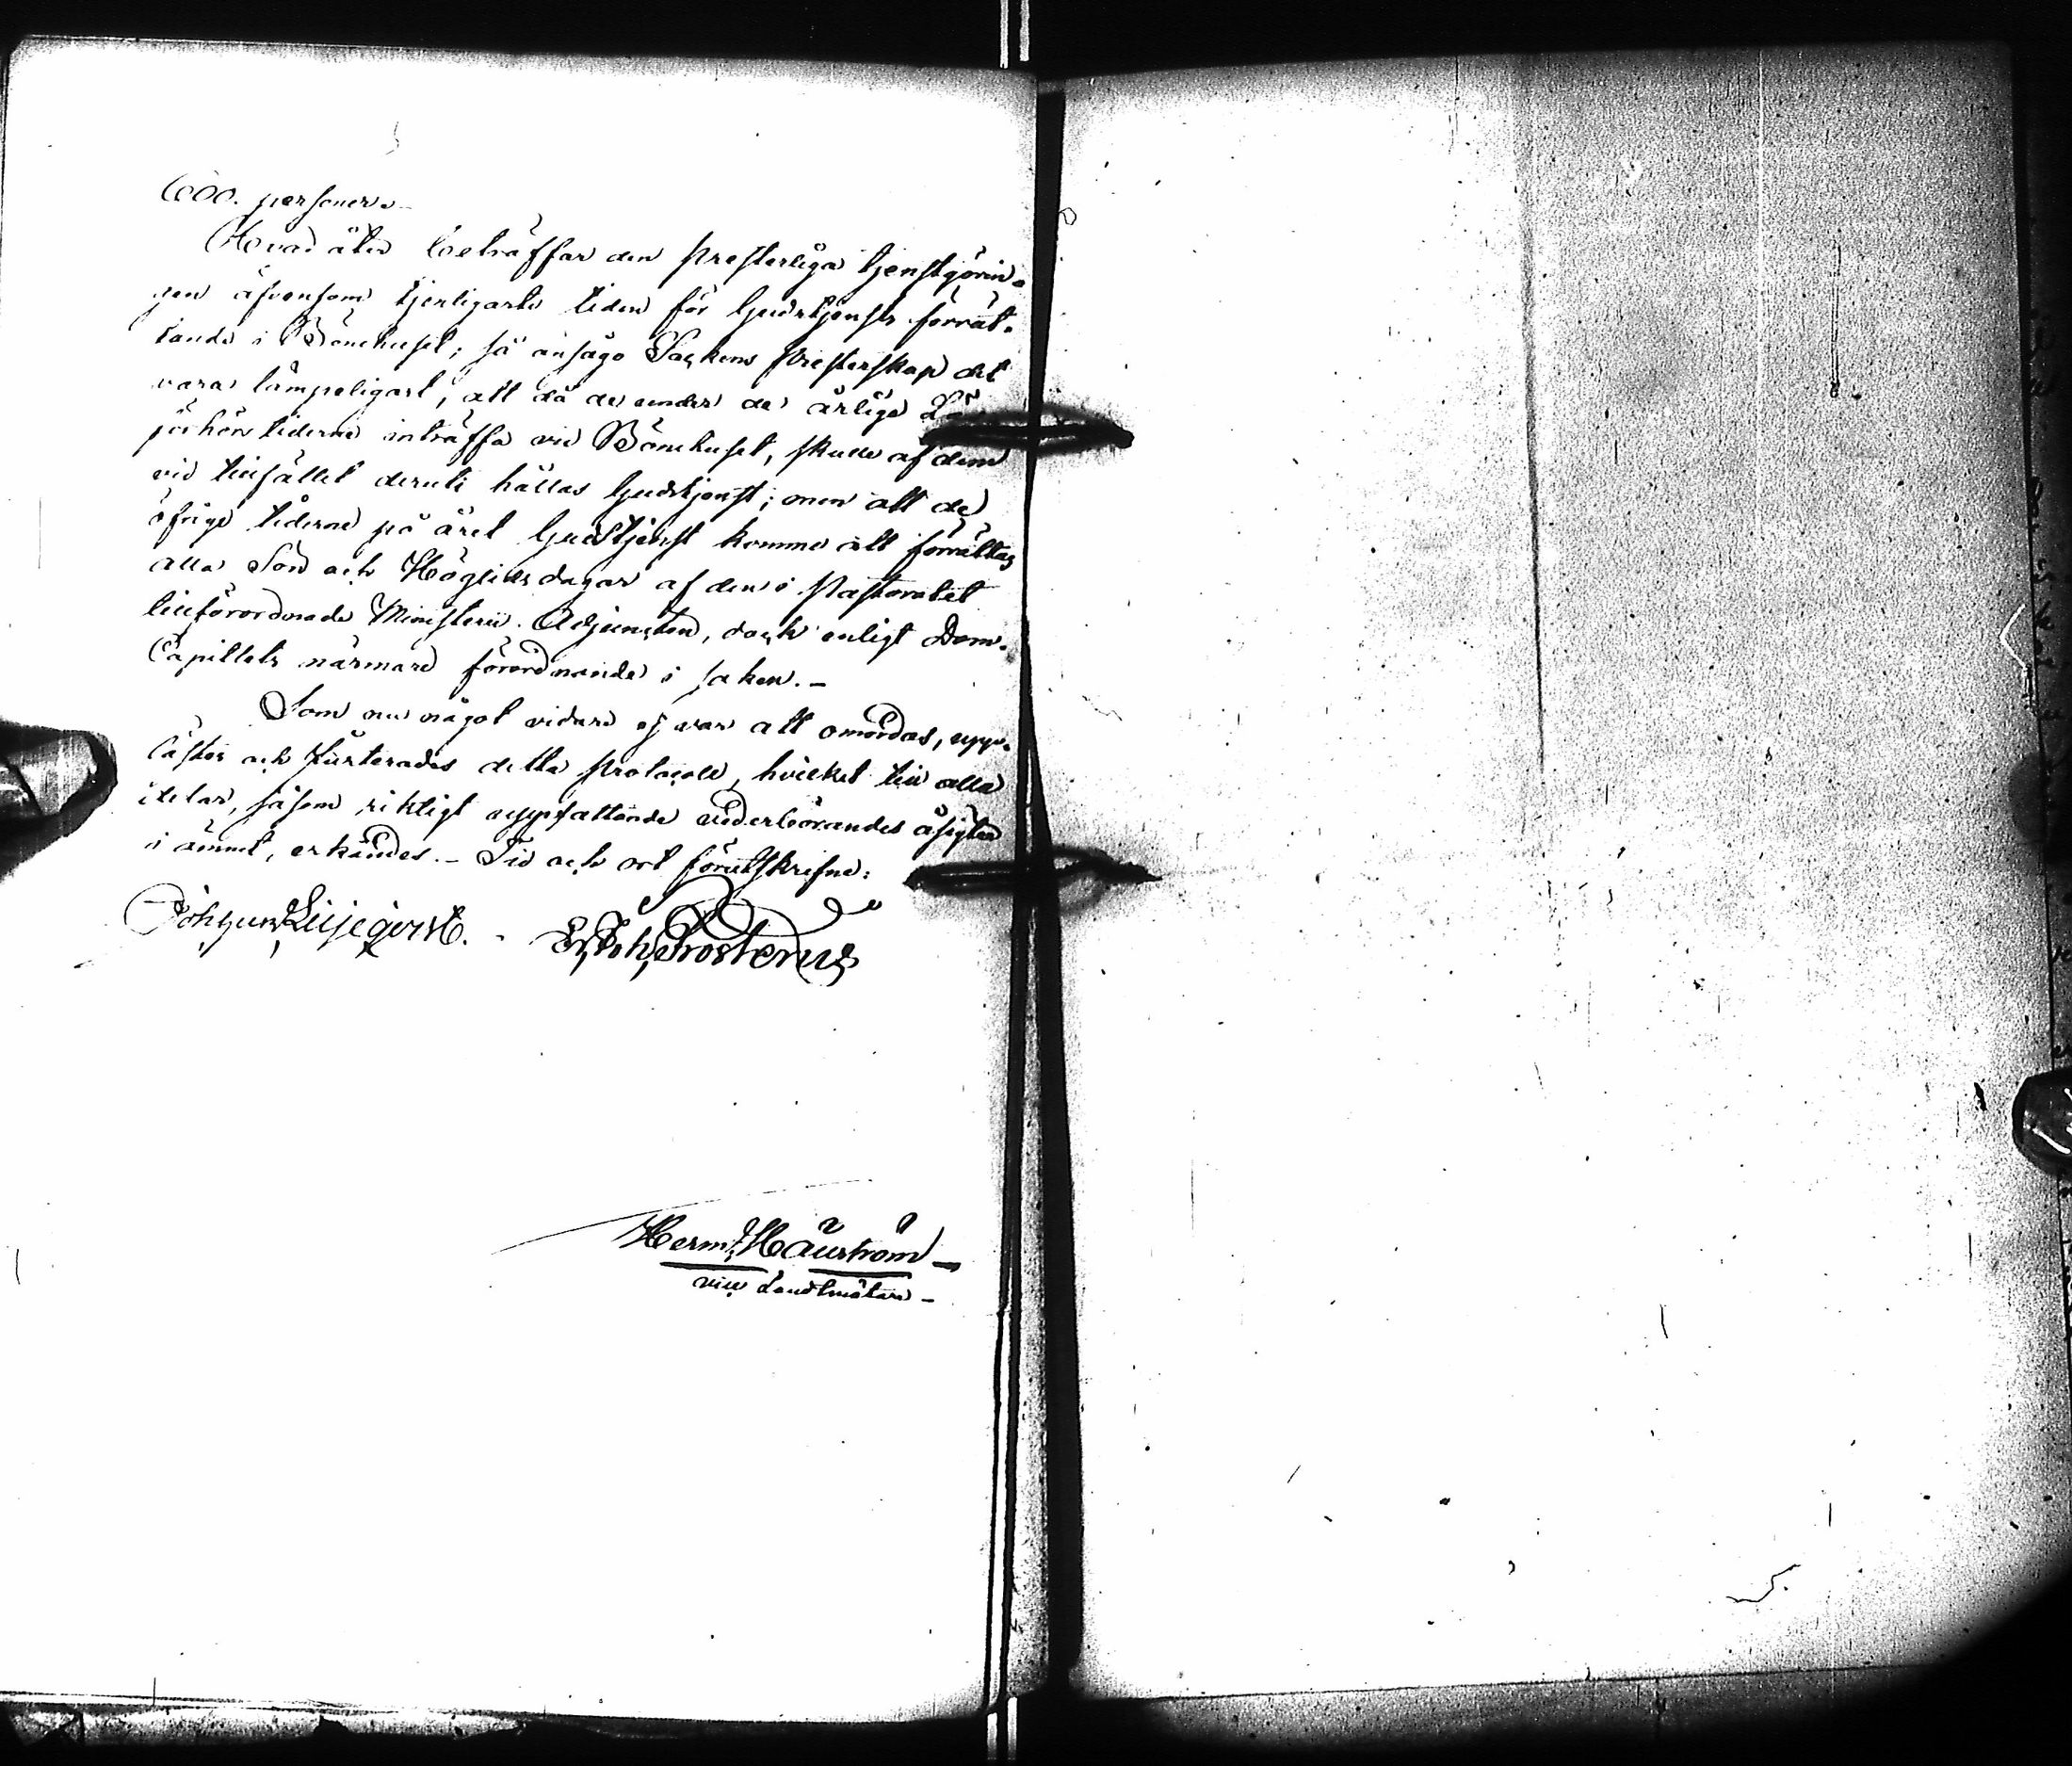 600. personer.
Hvad åter beträffar den presterliga tjenstgörin-
gen äfvensom tjenligaste tiden för Gudstjensts förrät-
tande i Bönehuset; så ansågo Sockens Presterskap det
vara lämpeligast, att då de under de årliga Läs-
förhörs tiderne inträffa vid Bönehuset, skulle af dem
vid tillfället deruti hållas Gudstjenst; men att de
öfrige tiderne på året Gudstjenst komme att förrättas
alla Sön och Högtids dagar af den i Pastoratet
tillförordnade Ministerii Adjuncten, dock enligt Dom-
Capitlets närmare förordnande i saken. -
Som nu något vidare ej var att omordas, upp-
lästes och justerades detta protocoll, hvilket till alla
delar, såsom riktigt uppfattande vederbörandes åsigter
i ämnet, erkändes. - Tid och ort förutskrifne:
Joh: Gust: Frosterus
Herm: Hällström -
vice Landtmätare -